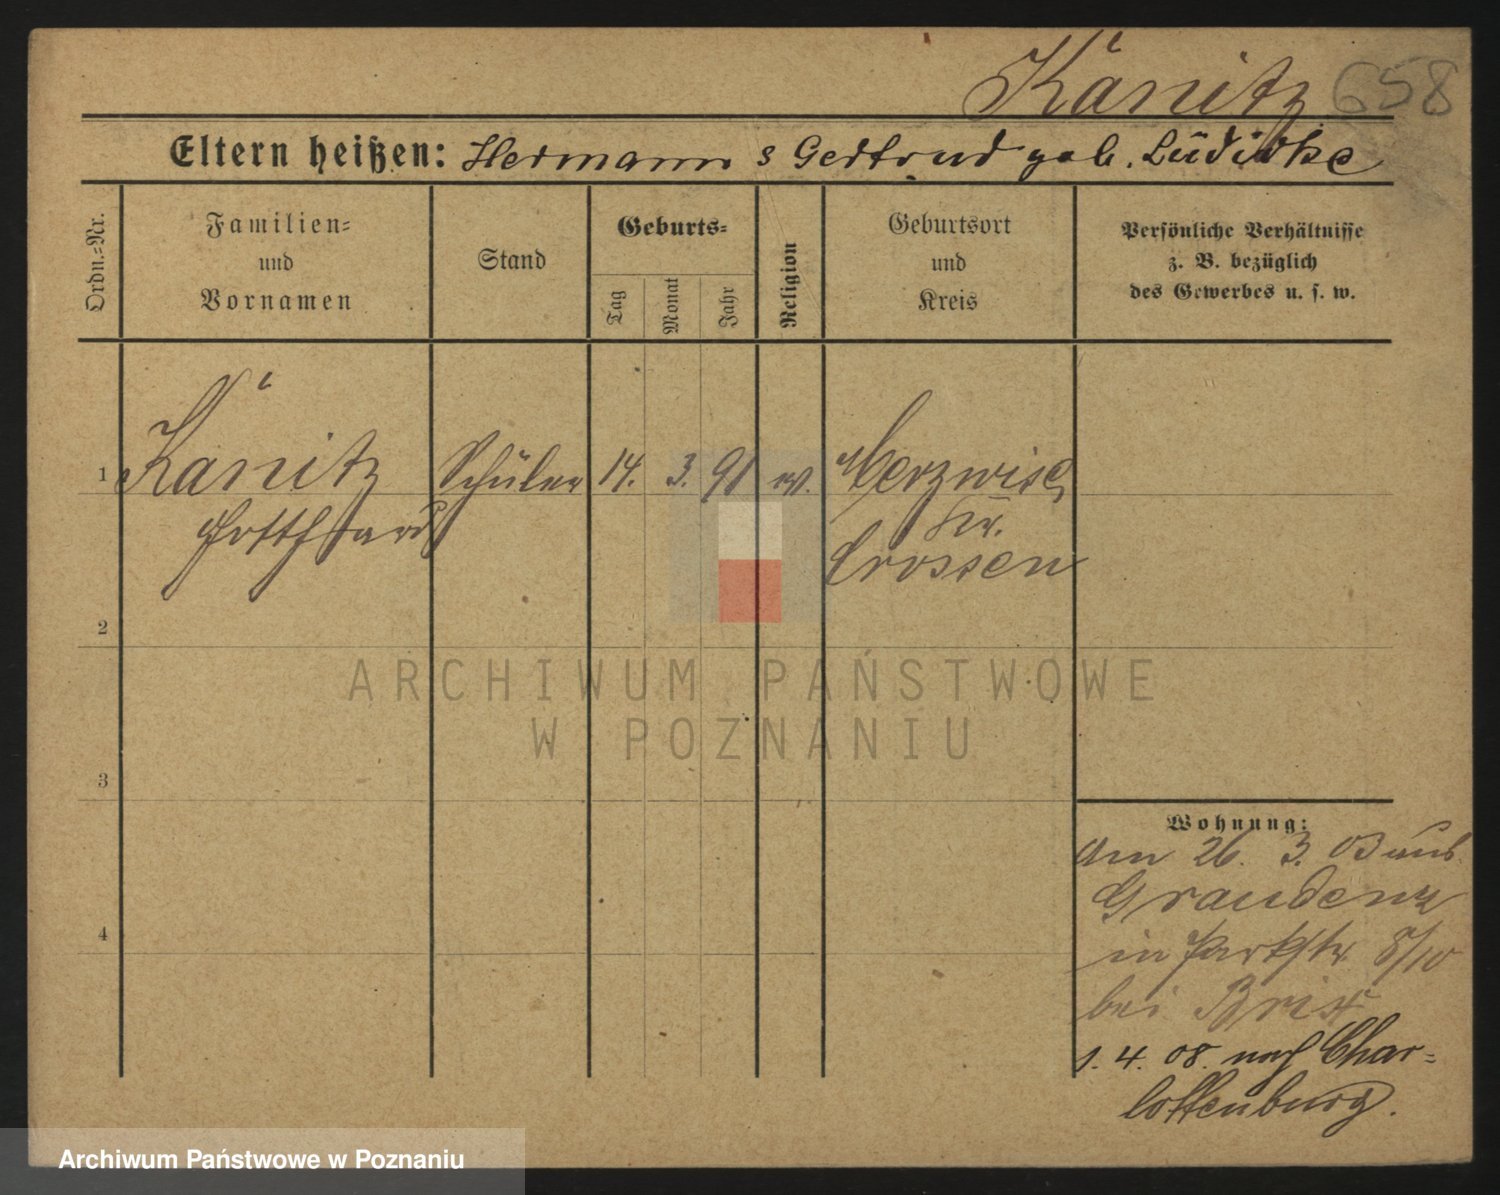 Känitz 658
Eltern heißen: Hermann & Gertrud geb. Lüdicke
Ordn.=Nr.
Familien=
und
Vornamen
Stand
Geburts=
Tag
Monat
Jahr
Religion
Geburtsort
und
Kreis
Persönliche Verhältnisse
z. B. bezüglich
des Gewerbes u. s. w.
1 Känitz Schüler 14. 3. 91 ev. Merzwiese
Gotthard Kr.
Crossen
2
ARCHIWUM PAŃSTWOWE
W POZNANIU
3
4
Wohnung:
Am 26. 3. 03 aus
Graudenz
in Parkstr 8/10
bei Brix
1. 4. 08. nach Char=
lottenburg.
Archiwum Państwowe w Poznaniu